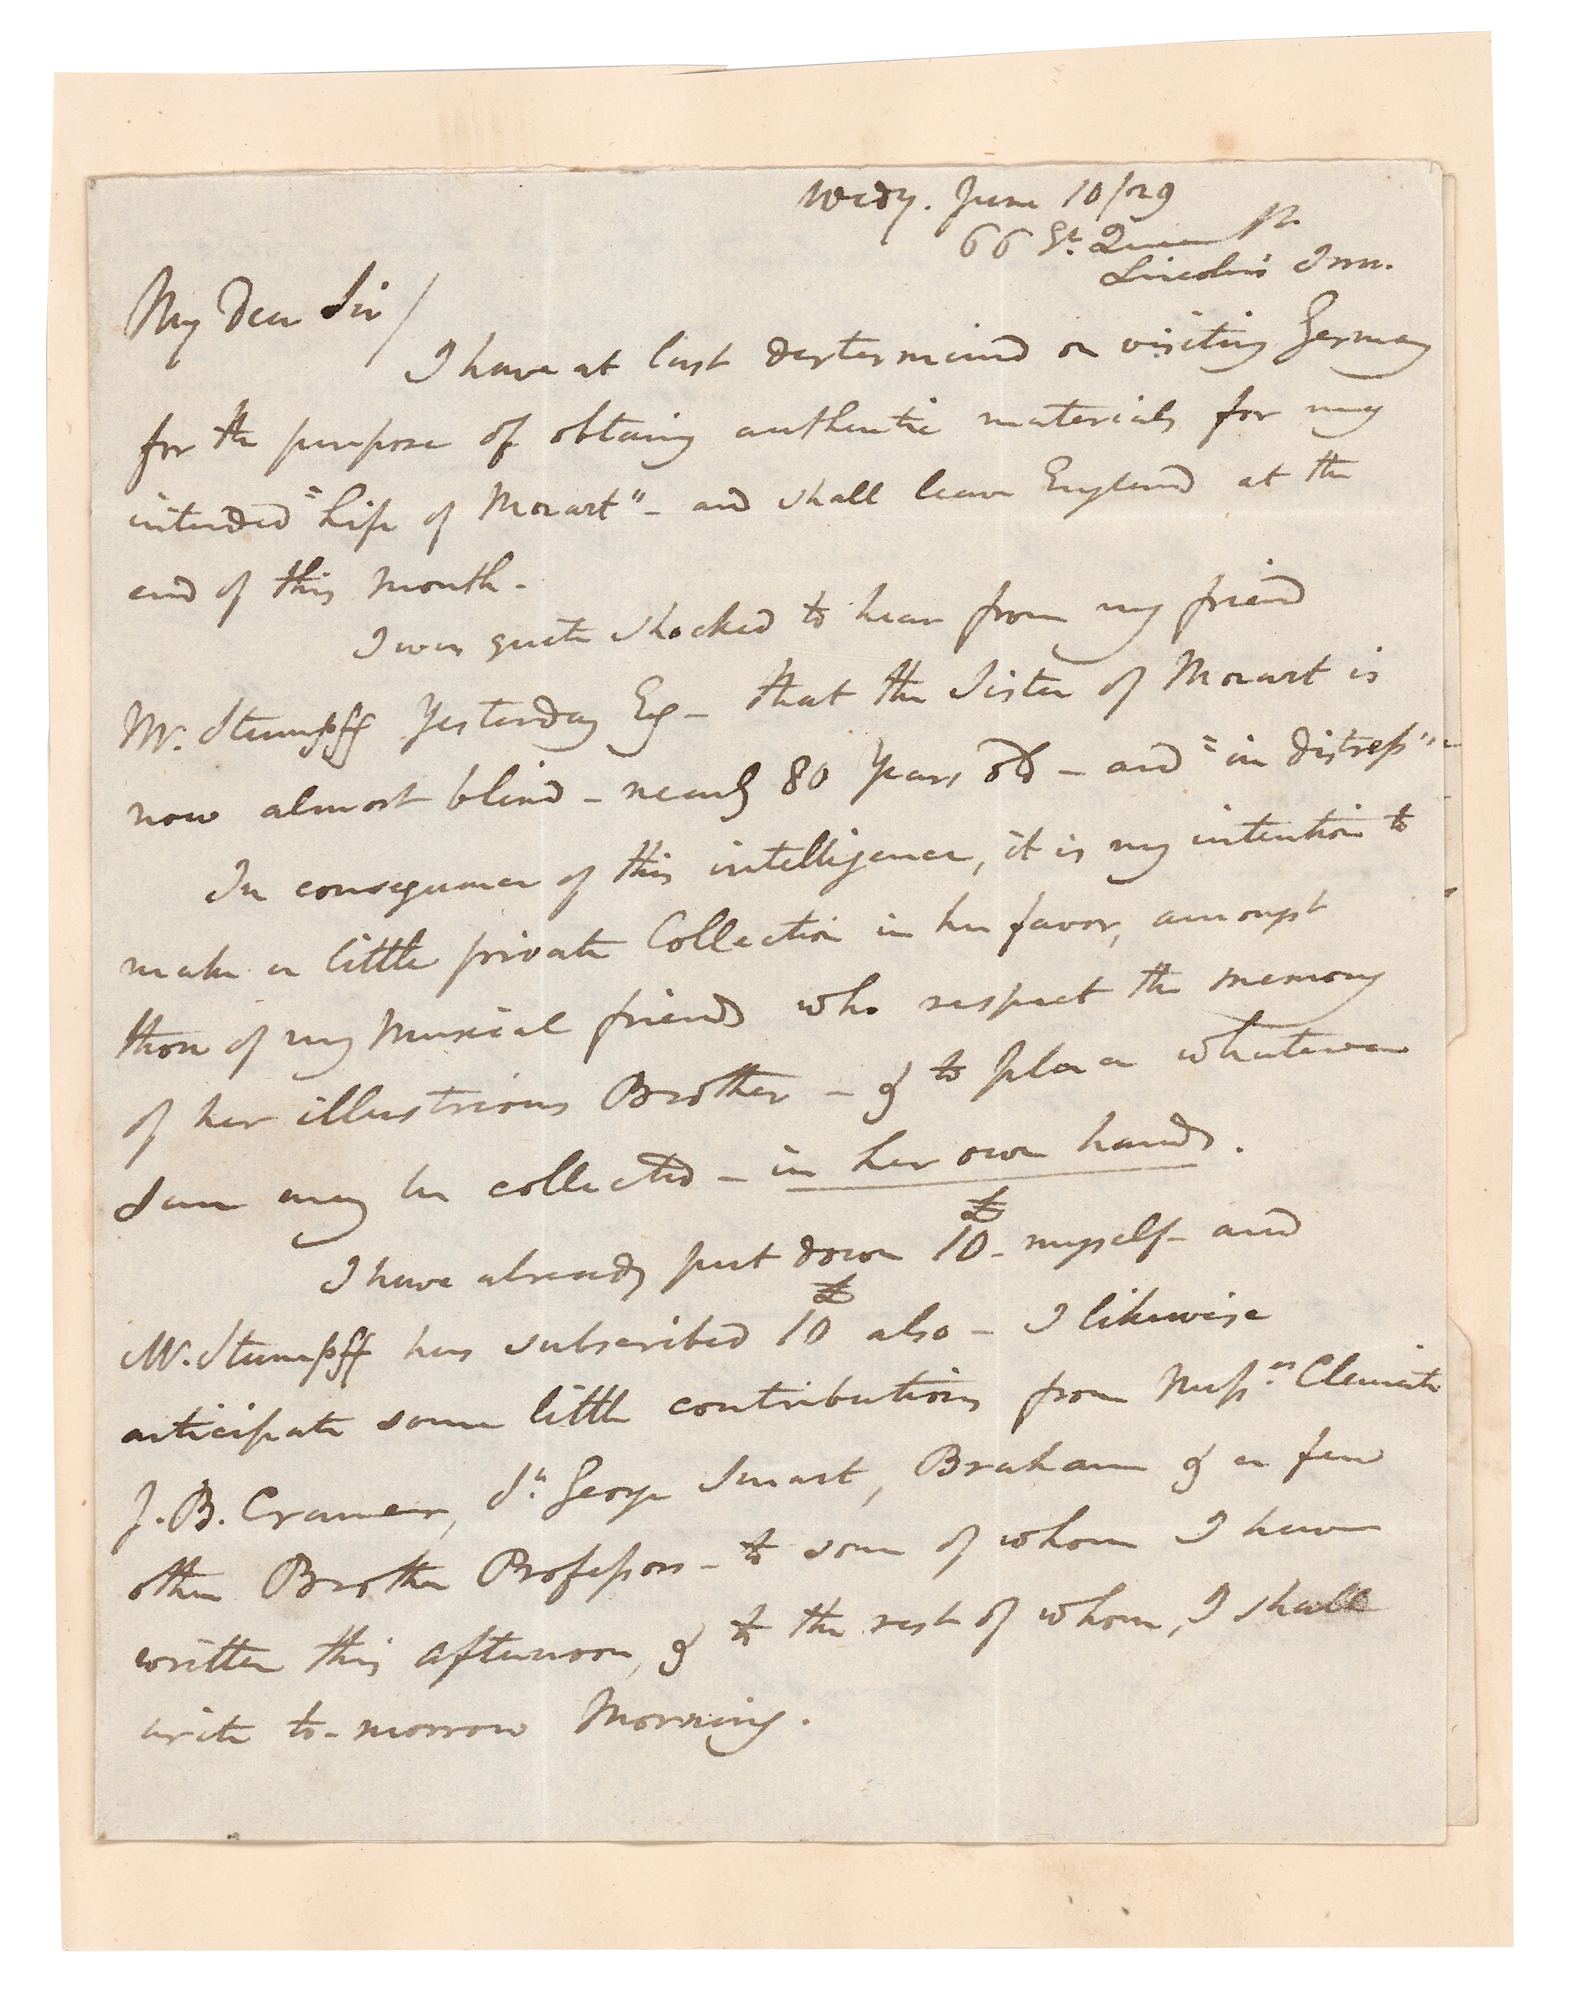 Wedy. June 10/29
66 Gt. Queen St.
Lincoln's Inn.
My Dear Sir/
I have at last dertermined on visiting Germany
for the purpose of obtaing authentic materials for my
intended "Life of Mozart" - and shall leave England at the
end of this Month.
I was quite shocked to hear from my friend
Mr. Stumpff Yesterday Eg - that the Sister of Mozart is
now almost blind - nearly 80 Years old - and "in distress"
In consequence of this intelligence, it is my intention to
make a little private Collection in her favor, amongst
those of my Musical friends who respect the memory
of her illustrious Brother - & to place whatever
Sum may be collected - in her own hands.
I have already put down £10 - myself - and
Mr. Stumpff has subscribed £10 also - I likewise
anticipate some little contributions from Messrs. Clementi
J. B. Cramer, Sr. George Smart, Braham & a few
other Brother Professors - to some of whom I have
written this afternoon, & to the rest of whom, I shall
write to-morrow Morning.